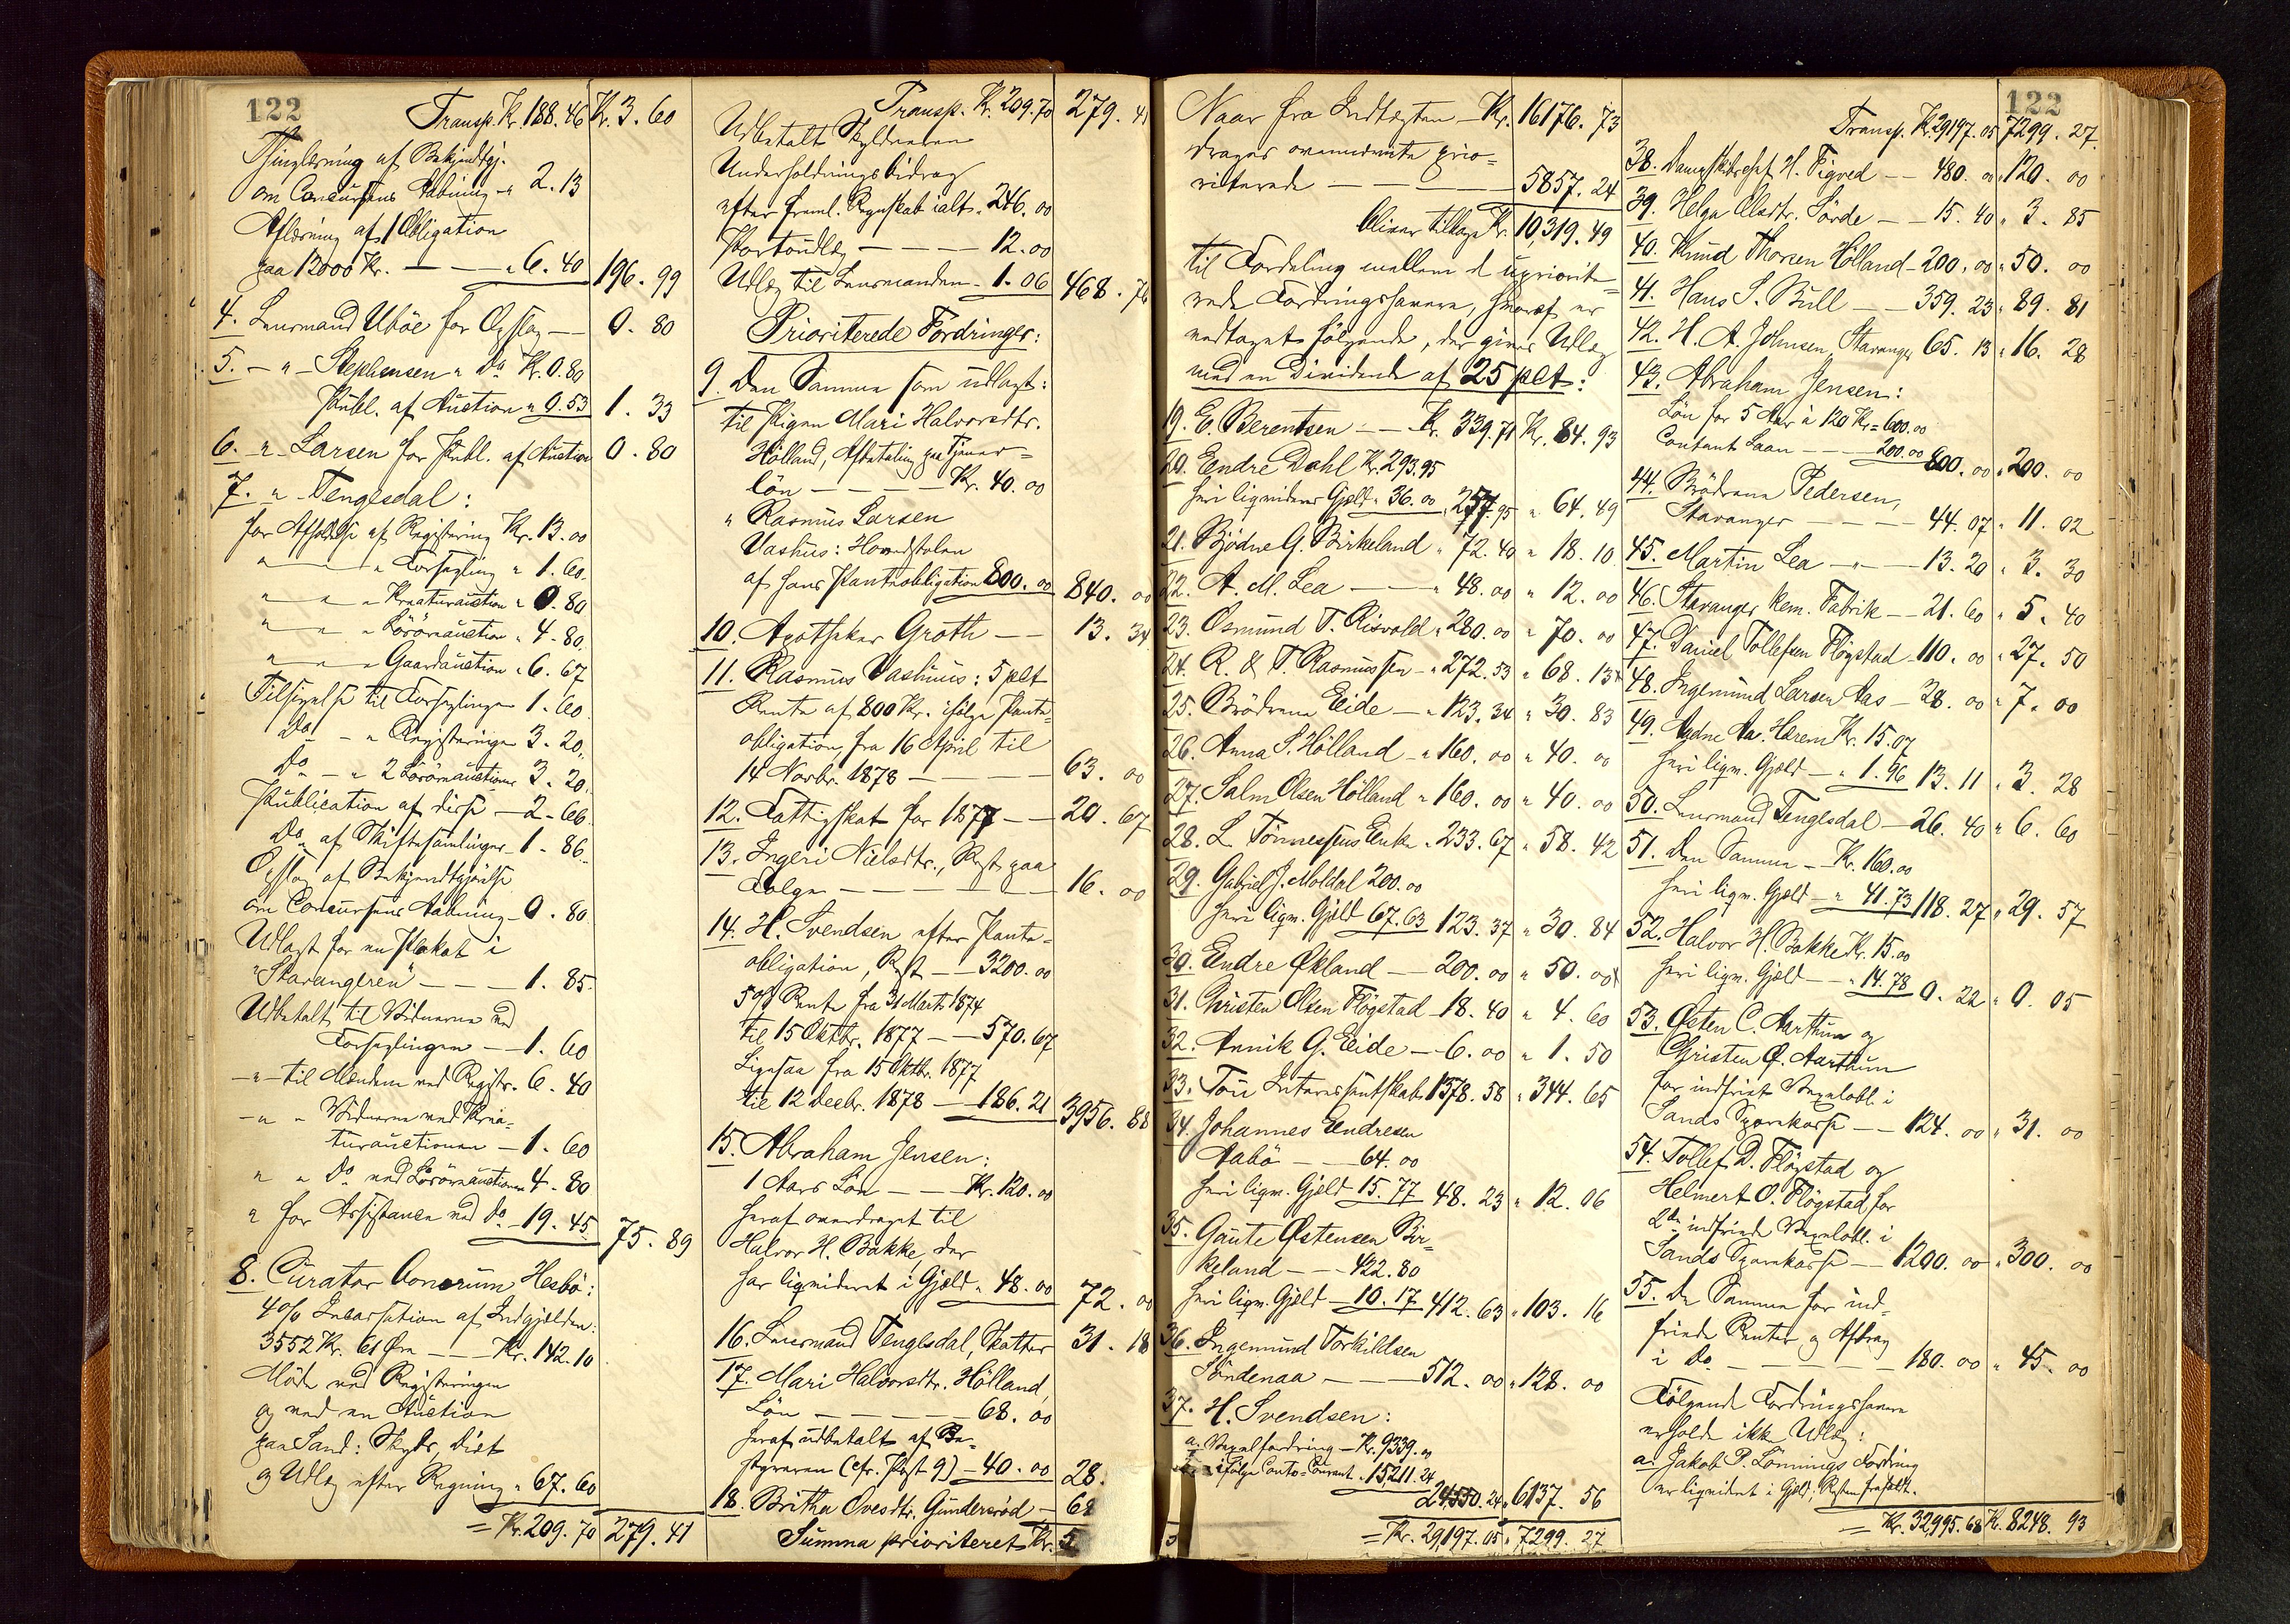 122
Transp. Kr. 188.46 Kr. 3. 60
Thinglæsning af Bekjendtgj.
om Concursens Aabning - " 2.13
Aflæsning af 1 Obligation
paa 12000 Kr. — — " 6.40 196. 99
4. Lensmand Uböe for Opslag — 0. 80
5. — " — Stephensen " Do Kr. 0.80
Publ. af Auction " 0.53 1. 33
6. — " — Larsen for Publ. af Auction 0. 80
7. — " — Tengesdal:
for Afholdelse af Registering Kr. 13.00
" — " Forsegling " 1.60
" — " Kreaturauction " 0.80
" — " Lösöreauction " 4.80
" — " Gaardauction " 6.67
Tilsigelse til Forseglingen 1.60
Do — " Registeringen 3.20
Do — " 2 Lösöreauctioner 3.20
Publication af disse — 2.66
Do af Skiftesamlinger 1.86
Opslag af Bekjendtgjörelse
om Concursens Aabning - 0.80
Udlagt for en Plakat i
"Stavangeren" — — — 1.85
Udbetalt til Vidnerne ved
Forseglingen — 1.60
— " — til Mændene ved Registr. 6.40
— " " Vidnerne ved Krea-
turauctionen — 1.60
" " Do ved Lösöreauctionen 4.80
" for Assistance ved Do - 19.45 75. 89
8. Curator bonorum Hesbö:
4% Incassation af Indgjælden:
3552 Kr. 61 Öre — — Kr. 142.10
Möde ved Registeringen
og ved en Auction
paa Sand: Skyds, Diet
og Udlæg efter Regning " 67.60
= Kr. 209.70 279. 41
Transp. Kr. 209.70 279. 41
Udbetalt Skyldneren
Underholdningsbidrag
efter freml. Regnskab ialt " 246.00
Portoudlæg — — — 12.00
Udlæg til Lensmanden - 1.06 468. 76
Prioriterede Fordringer:
9. Den Samme som udlagt:
til Pigen Mari Halvorsdtr.
Hölland, Afbetaling paa Tjener-
lön — — — — Kr. 40.00
" Rasmus Larsen
Vashus: Hovedstolen
af hans Panteobligation 800.00 840. 00
10. Apotheker Groth — — 13. 34
11. Rasmus Vashuus: 5 pCt
Rente af 800 Kr. ifölge Pante-
obligation fra 16 April til
14 Novbr. 1878 — — — — 63. 00
12. Fattigskat for 1877 — — 20. 67
13. Ingeri Nielsdtr., Rest paa
Folge — — — — — 16. 00
14. H. Svendsen efter Pante-
obligation, Rest — 3200.00
5% Rente fra 31 Marts 1874
til 15 Oktbr. 1877 — — 570.67
Ligesaa fra 15 Oktbr. 1877
til 12 Decbr. 1878 — 186.21 3956. 88
15. Abraham Jensen:
1 Aars Lön — — Kr. 120.00
heraf overdraget til
Halvor H. Bakke, der
har liqvideret i Gjæld " 48.00 72. 00
16. Lensmand Tengesdal, Skatter 31. 18
17. Mari Halvorsdtr. Hölland,
Lön — — — — — 68.00
heraf udbetalt af Be-
styreren (cfr. Post 9) — 40.00 28.
18. Britha Ovesdtr. Gundersröd — 68
Summa prioriteret Kr. 5
Naar fra Indtægten — Kr. 16176. 73
drages ovennævnte prio-
riterede — — — — 5857. 24
bliver tilbage Kr. 10,319. 49
til Fordeling mellem de upriorite-
rede Fordringshavere, hvoraf er
vedtaget fölgende, der gives Udlæg
med en Dividende af 25 pCt:
19. E. Berentsen — — Kr. 339.71 Kr. 84. 93
20. Endre Dahl Kr. 293.95
heri liqvideres Gjæld " 36.00 257.95 " 64. 49
21. Bjödne G. Birkeland " 72.40 " 18. 10
22. A. M. Lea — — " 48.00 " 12. 00
23. Osmund T. Risvold " 280.00 " 70. 00
24. R. & T. Rasmussen — " 272.53 " 68. 13
25. Brödrene Eide — " 123.34 " 30. 83
26. Anna S. Hölland — " 160.00 " 40. 00
27. Salm. Olsen Hölland " 160.00 " 40. 00
28. L. Tönnessens Enke " 233.67 " 58. 42
29. Gabriel J. Moldal 200.00
heri liqv. Gjæld 67.63 123.37 " 30. 84
30. Endre Økland — 200.00 " 50. 00
31. Christen Olsen Flögstad 18.40 " 4. 60
32. Annik G. Eide — 6.00 " 1. 50
33. Tou Interessentskab 1378.58 " 344. 65
34. Johannes Endresen
Aabö — — 64.00
heri liqv. Gjæld 15.77 48.23 " 12. 06
35. Gaute Østensen Bir-
keland — — 422.80
heri liqv. Gjæld — 10.17 412.63 " 103. 16
36. Ingemund Torkildsen
Söndenaa — — — 512.00 " 128. 00
37. H. Svendsen:
a. Vexelfordring — Kr. 9339.00
b. ifölge Conto-Courant " 15,211.24
24,550.24 " 6137. 56
= Kr. 29,197.05 " 7,299. 27
122
Transp. Kr. 29197.05 7299. 27
38. Dampskibsexp. H. Tigved — — 480.00 " 120. 00
39. Helga Olsdtr. Lörde — — 15.40 " 3. 85
40. Knud Thorsen Hölland — 200.00 " 50. 00
41. Hans S. Bull — — 359.23 " 89. 81
42. H. A. Johnsen, Stavanger 65.13 " 16. 28
43. Abraham Jensen:
Lön for 5 Aar à 120 Kr. = 600.00
Contant Laan — — 200.00 800.00 " 200. 00
44. Brödrene Pedersen,
Stavanger — — — 44.07 " 11. 02
45. Martin Lea — " — 13.20 " 3. 30
46. Stavanger kem. Fabrik — 21.60 " 5. 40
47. Daniel Tollefsen Flögstad — 110.00 " 27. 50
48. Ingemund Larsen Aas — 28.00 " 7. 00
49. Aadne Aa. Hærem Kr. 15.07
heri liqv. Gjæld — " 1.96 13.11 " 3. 28
50. Lensmand Tengesdal — 26.40 " 6. 60
51. Den Samme — Kr. 160.00
heri liqv. Gjæld — " 41.73 118.27 " 29. 57
52. Halvor H. Bakke Kr. 15.00
heri liqv. Gjæld — " 14.78 0.22 " 0. 05
53. Østen C. Aarthun og
Christen Ø. Aarthun
for indfriet Vexelobl. i
Sands Sparekasse — — 124.00 " 31. 00
54. Tollef D. Flögstad og
Helmert O. Flögstad for
2de indfriede Vexelobl. i
Sands Sparekasse — 1200.00 " 300. 00
55. De Samme for ind-
friede Renter og Afdrag
i Do — — — — 180.00 " 45. 00
Fölgende Fordringshavere
erholde ikke Udlæg:
a. Jakob P. Lönnings Fordring
er liqvideret i Gjæld, Resten frafaldt.
= Kr. 32995.68 Kr. 8248. 93